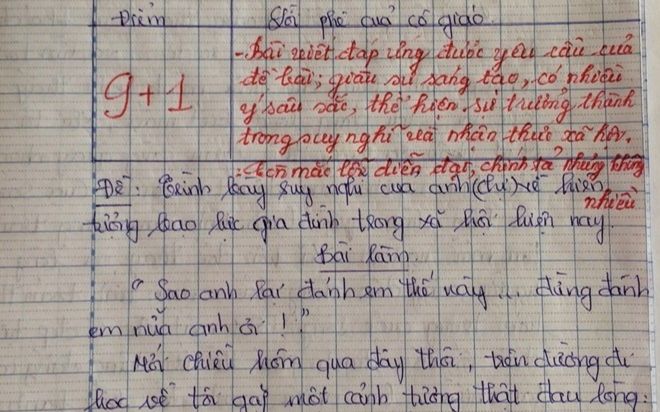 Điểm
Lời phê của cô giáo
9+1
-Bài viết đáp ứng được yêu cầu của
đề bài; giàu sự sáng tạo, có nhiều
ý sâu sắc, thể hiện sự trưởng thành
trong suy nghĩ và nhận thức xã hội.
- Còn mắc lỗi diễn đạt, chính tả nhưng không
nhiều
Đề: Trình bày suy nghĩ của anh (chị) về hiện
tượng bạo lực gia đình trong xã hội hiện nay.
Bài làm
" Sao anh lại đánh em thế này ... đừng đánh
em nữa anh ơi !"
Mới chiều hôm qua đây thôi, trên đường đi
học về tôi gặp một cảnh tượng thật đau lòng: